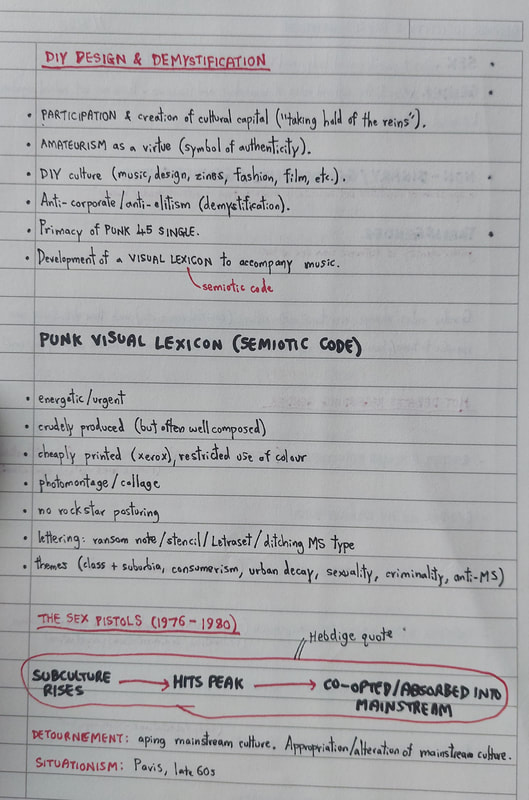 DIY DESIGN & DEMYSTIFICATION
• PARTICIPATION & creation of cultural capital ("taking hold of the reins").
• AMATEURISM as a virtue (symbol of authenticity).
• DIY culture (music, design, zines, fashion, film, etc.).
• Anti-corporate/anti-elitism (demystification).
• Primacy of PUNK 45 SINGLE.
• Development of a VISUAL LEXICON to accompany music.
semiotic code
PUNK VISUAL LEXICON (SEMIOTIC CODE)
• energetic/urgent
• crudely produced (but often well composed)
• cheaply printed (xerox), restricted use of colour
• photomontage/collage
• no rockstar posturing
• lettering: ransom note/stencil/Letraset/ditching MS type
• themes (class + suburbia, consumerism, urban decay, sexuality, criminality, anti-MS)
THE SEX PISTOLS (1976-1980)
Hebdige quote
SUBCULTURE RISES → HITS PEAK → CO-OPTED/ABSORBED INTO MAINSTREAM
DETOURNEMENT: aping mainstream culture. Appropriation/alteration of mainstream culture.
SITUATIONISM: Paris, late 60s